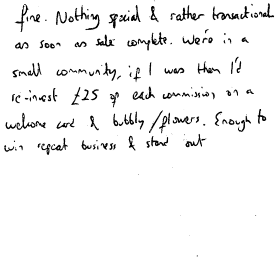 fine. Nothing special & rather transactional
as soon as sale complete. We're in a
small community, if I was them I'd
re-invest £25 of each commission on a
welcome card & bubbly / flowers. Enough to
win repeat business & stand out